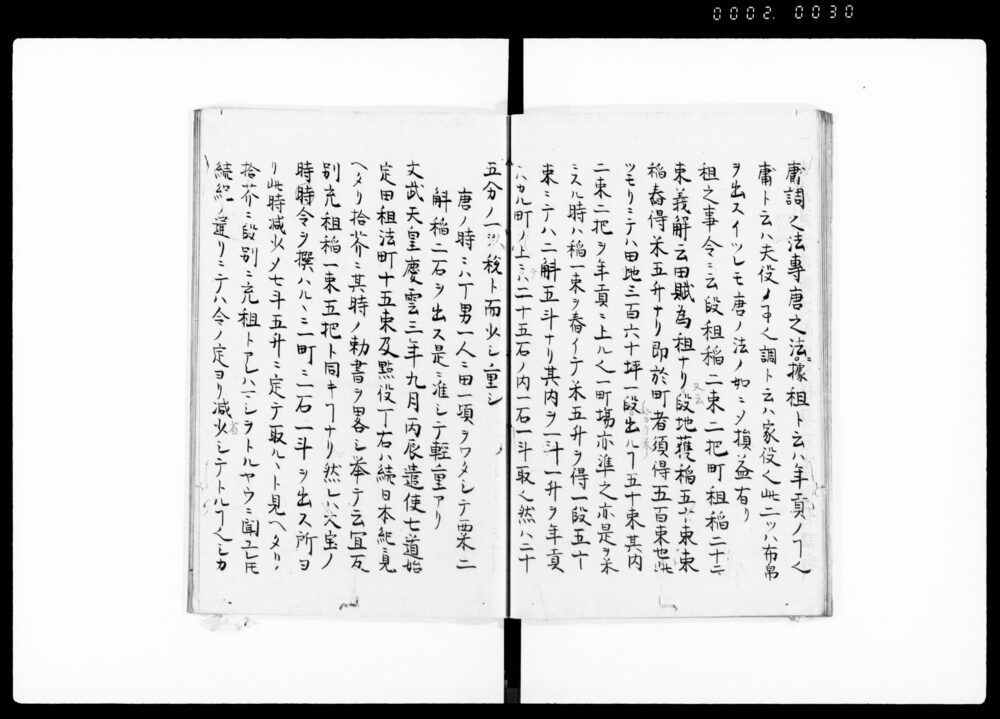 0002.0030
庸調之法專唐之法ニ據租ト云ハ年貢ノヿ也
庸ト云ハ夫役ノヿ也調ト云ハ家役也此二ツハ布帛
ヲ出スイツレモ唐ノ法ノ如ニメ損益有リ
租之事令ニ云段租稲二束二把町租稲二十二
束義解云田賦為租ナリ段地獲稲五十束束
稲舂得米五升ナリ即於町者須得五百束也此
ツモリニテハ田地三百六十坪一段出ルヿ五十束其内
二束二把ヲ年貢ニ上ル也一町場亦準之亦是ヲ米
ニスル時ハ稲一束ヲ舂イテ米五升ヲ得一段五十
束ニテハ二斛五斗ナリ其内ヲ一斗一升ヲ年貢
トスル町ノ上ニハ二十五石ノ内一石一斗取也然ハ二十
五分ノ一ノ税ト而少シ重シ
唐ノ時ニハ丁男一人ニ田一頃ヲワタシテ粟二
斛稲二石ヲ出ス是ニ准シテ輕重アリ
文武天皇慶雲三年九月丙辰遣使七道始
定田租法町十五束及點役丁右ハ続日本紀ニ見
ヘタリ拾芥ニ其時ノ勅書ヲ畧シ挙テ云冝反
別充租稲一束五把ト同キヿナリ然レハ大宝ノ
時時令ヲ撰ハルヽニ町ニ一石一斗ヲ出ス所ヨ
リ此時減少メ七斗五升ニ定テ取ルヽト見ヘタリ
拾芥ニ段別ニ充租トアレハニシヲトルヤウニ聞ユレモ
続紀ノ通リニテハ令ノ定ヨリ減少シテトルヿ也シカ